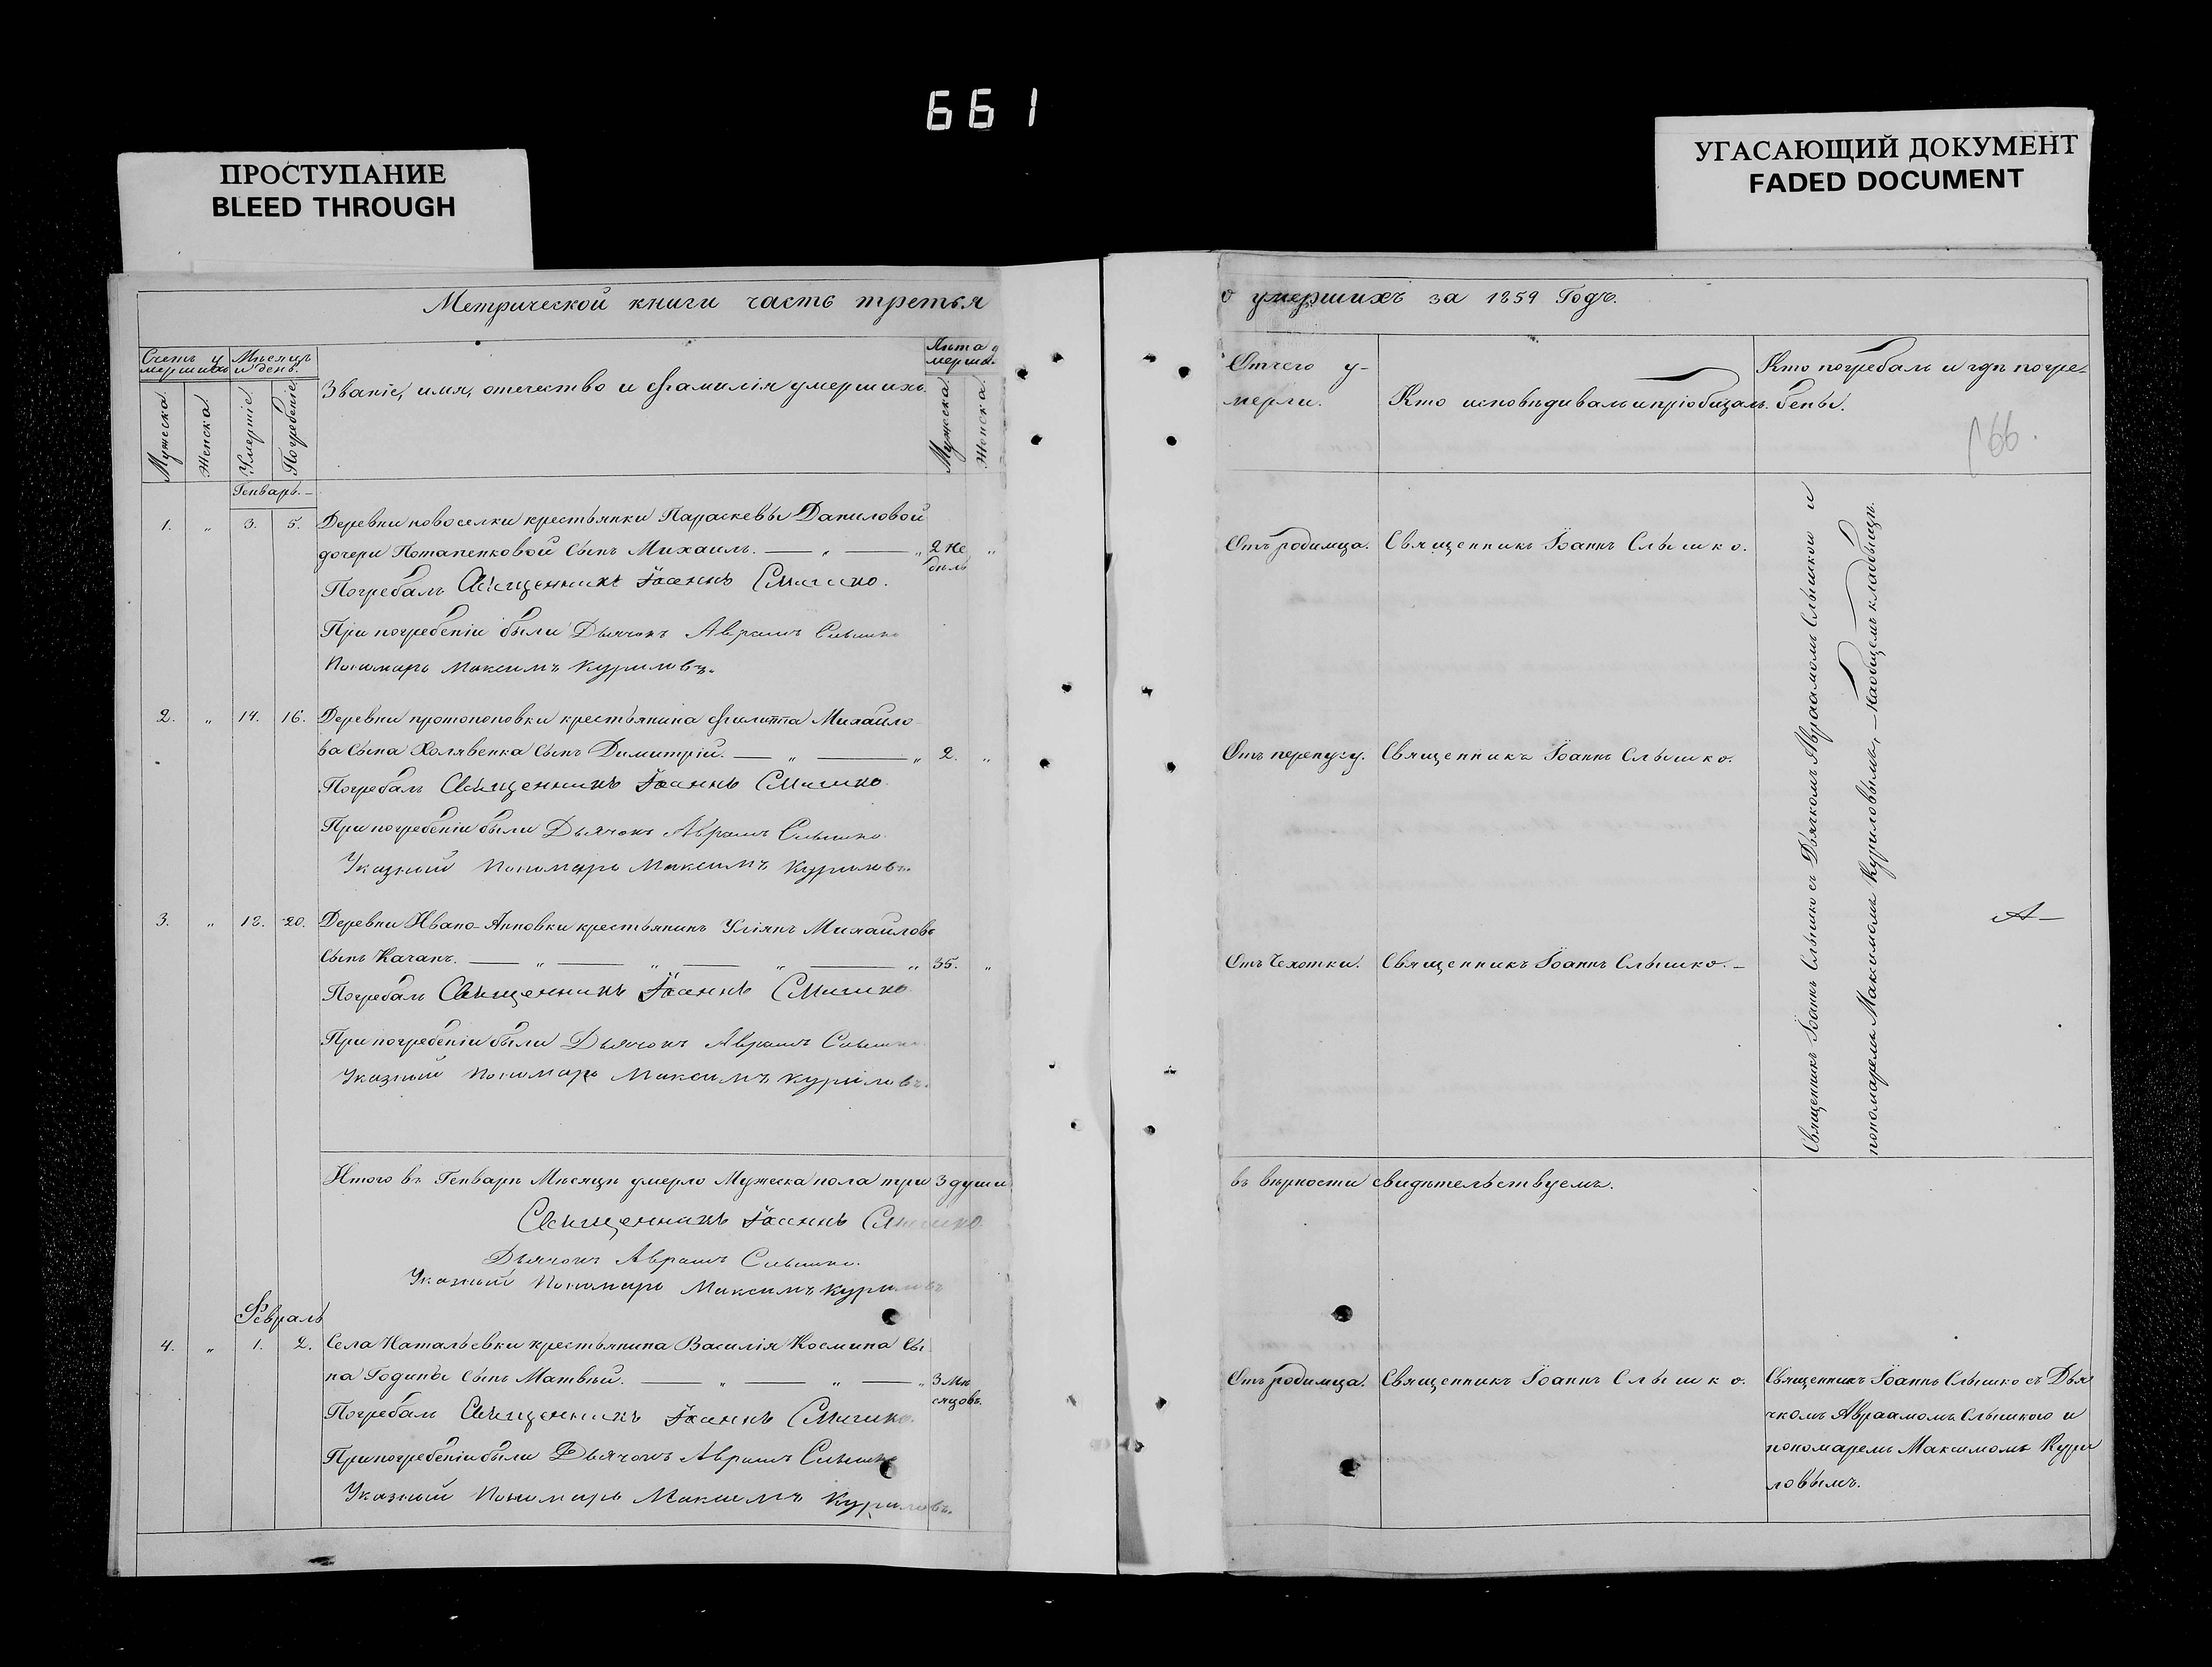 661
ПРОСТУПАНИЕ
BLEED THROUGH
УГАСАЮЩИЙ ДОКУМЕНТ
FADED DOCUMENT
Метрической книги часть третья
Счетъ у
мершихъ
Мѣсяцъ
и день.
Мужеска
Женска
Умертіе
Погребеніе
Званіе, имя, отечество и фамилія умершихъ.
Лѣта у
мерша.
Мужеска
Женска
Генварь. –
1. „ 3. 5. Деревни новоселки крестьянки Параскевы Даниловой
дочери Потапенковой сынъ Михаилъ. — „ — „ 2 не „
дѣль
Погребалъ Священникъ Іоаннъ Слышко.
При погребеніи были Дьячокъ Аврамъ Слышко
Пономарь Максимъ Куриловъ.
2. „ 14. 16. Деревни протопоповки крестьянина Филиппа Михайло
ва сына Холявенка сынъ Димитрій. — „ — „ 2. „
Погребалъ Священникъ Іоаннъ Слышко
При погребеніи были Дьячокъ Аврамъ Слышко
Указный Пономарь Максимъ Куриловъ.
3. „ 18. 20. Деревни Ивано-Анновки крестьянинъ Уліянъ Михайловъ
сынъ Качанъ. — „ — „ — „ — „ 35. „
Погребалъ Священникъ Іоаннъ Слышко
При погребеніи были Дьячокъ Аврамъ Слышко
Указный Пономарь Максимъ Куриловъ.
Итого въ Генварѣ Мѣсяцѣ умерло Мужеска пола три 3 души
Священникъ Іоаннъ Слышко
Дьячокъ Аврамъ Слышко.
Указный Пономарь Максимъ Куриловъ
Февраль
4. „ 1. 2. Села Натальевки крестьянина Василія Космина сы
на Годины сынъ Матвѣй. — „ — „ — „ 3 мѣ
сяцовъ.
Погребалъ Священникъ Іоаннъ Слышко.
При погребеніи были Дьячокъ Аврамъ Слышко
Указный Пономарь Максимъ Куриловъ.
о умершихъ за 1859 Годъ.
Отчего у-
мерли.
Кто исповѣдивалъ и пріобщалъ.
Кто погребалъ и гдѣ погре-
бены.
166.
Отъ родимца. Священникъ Іоаннъ Слышко.
Отъ перепугу. Священникъ Іоаннъ Слышко.
Отъ Чехотки. Священникъ Іоаннъ Слышко. –
Священникъ Іоаннъ Слышко съ Дьячкомъ Авраамомъ Слышкою и
пономаремъ Максимомъ Куриловымъ, – на общемъ кладбищѣ.
въ вѣрности свидѣтельствуемъ.
Отъ родимца. Священникъ Іоаннъ Слышко.
Священникъ Іоаннъ Слышко съ Дья
чкомъ Авраамомъ Слышкою и
пономаремъ Максимомъ Кури
ловымъ.